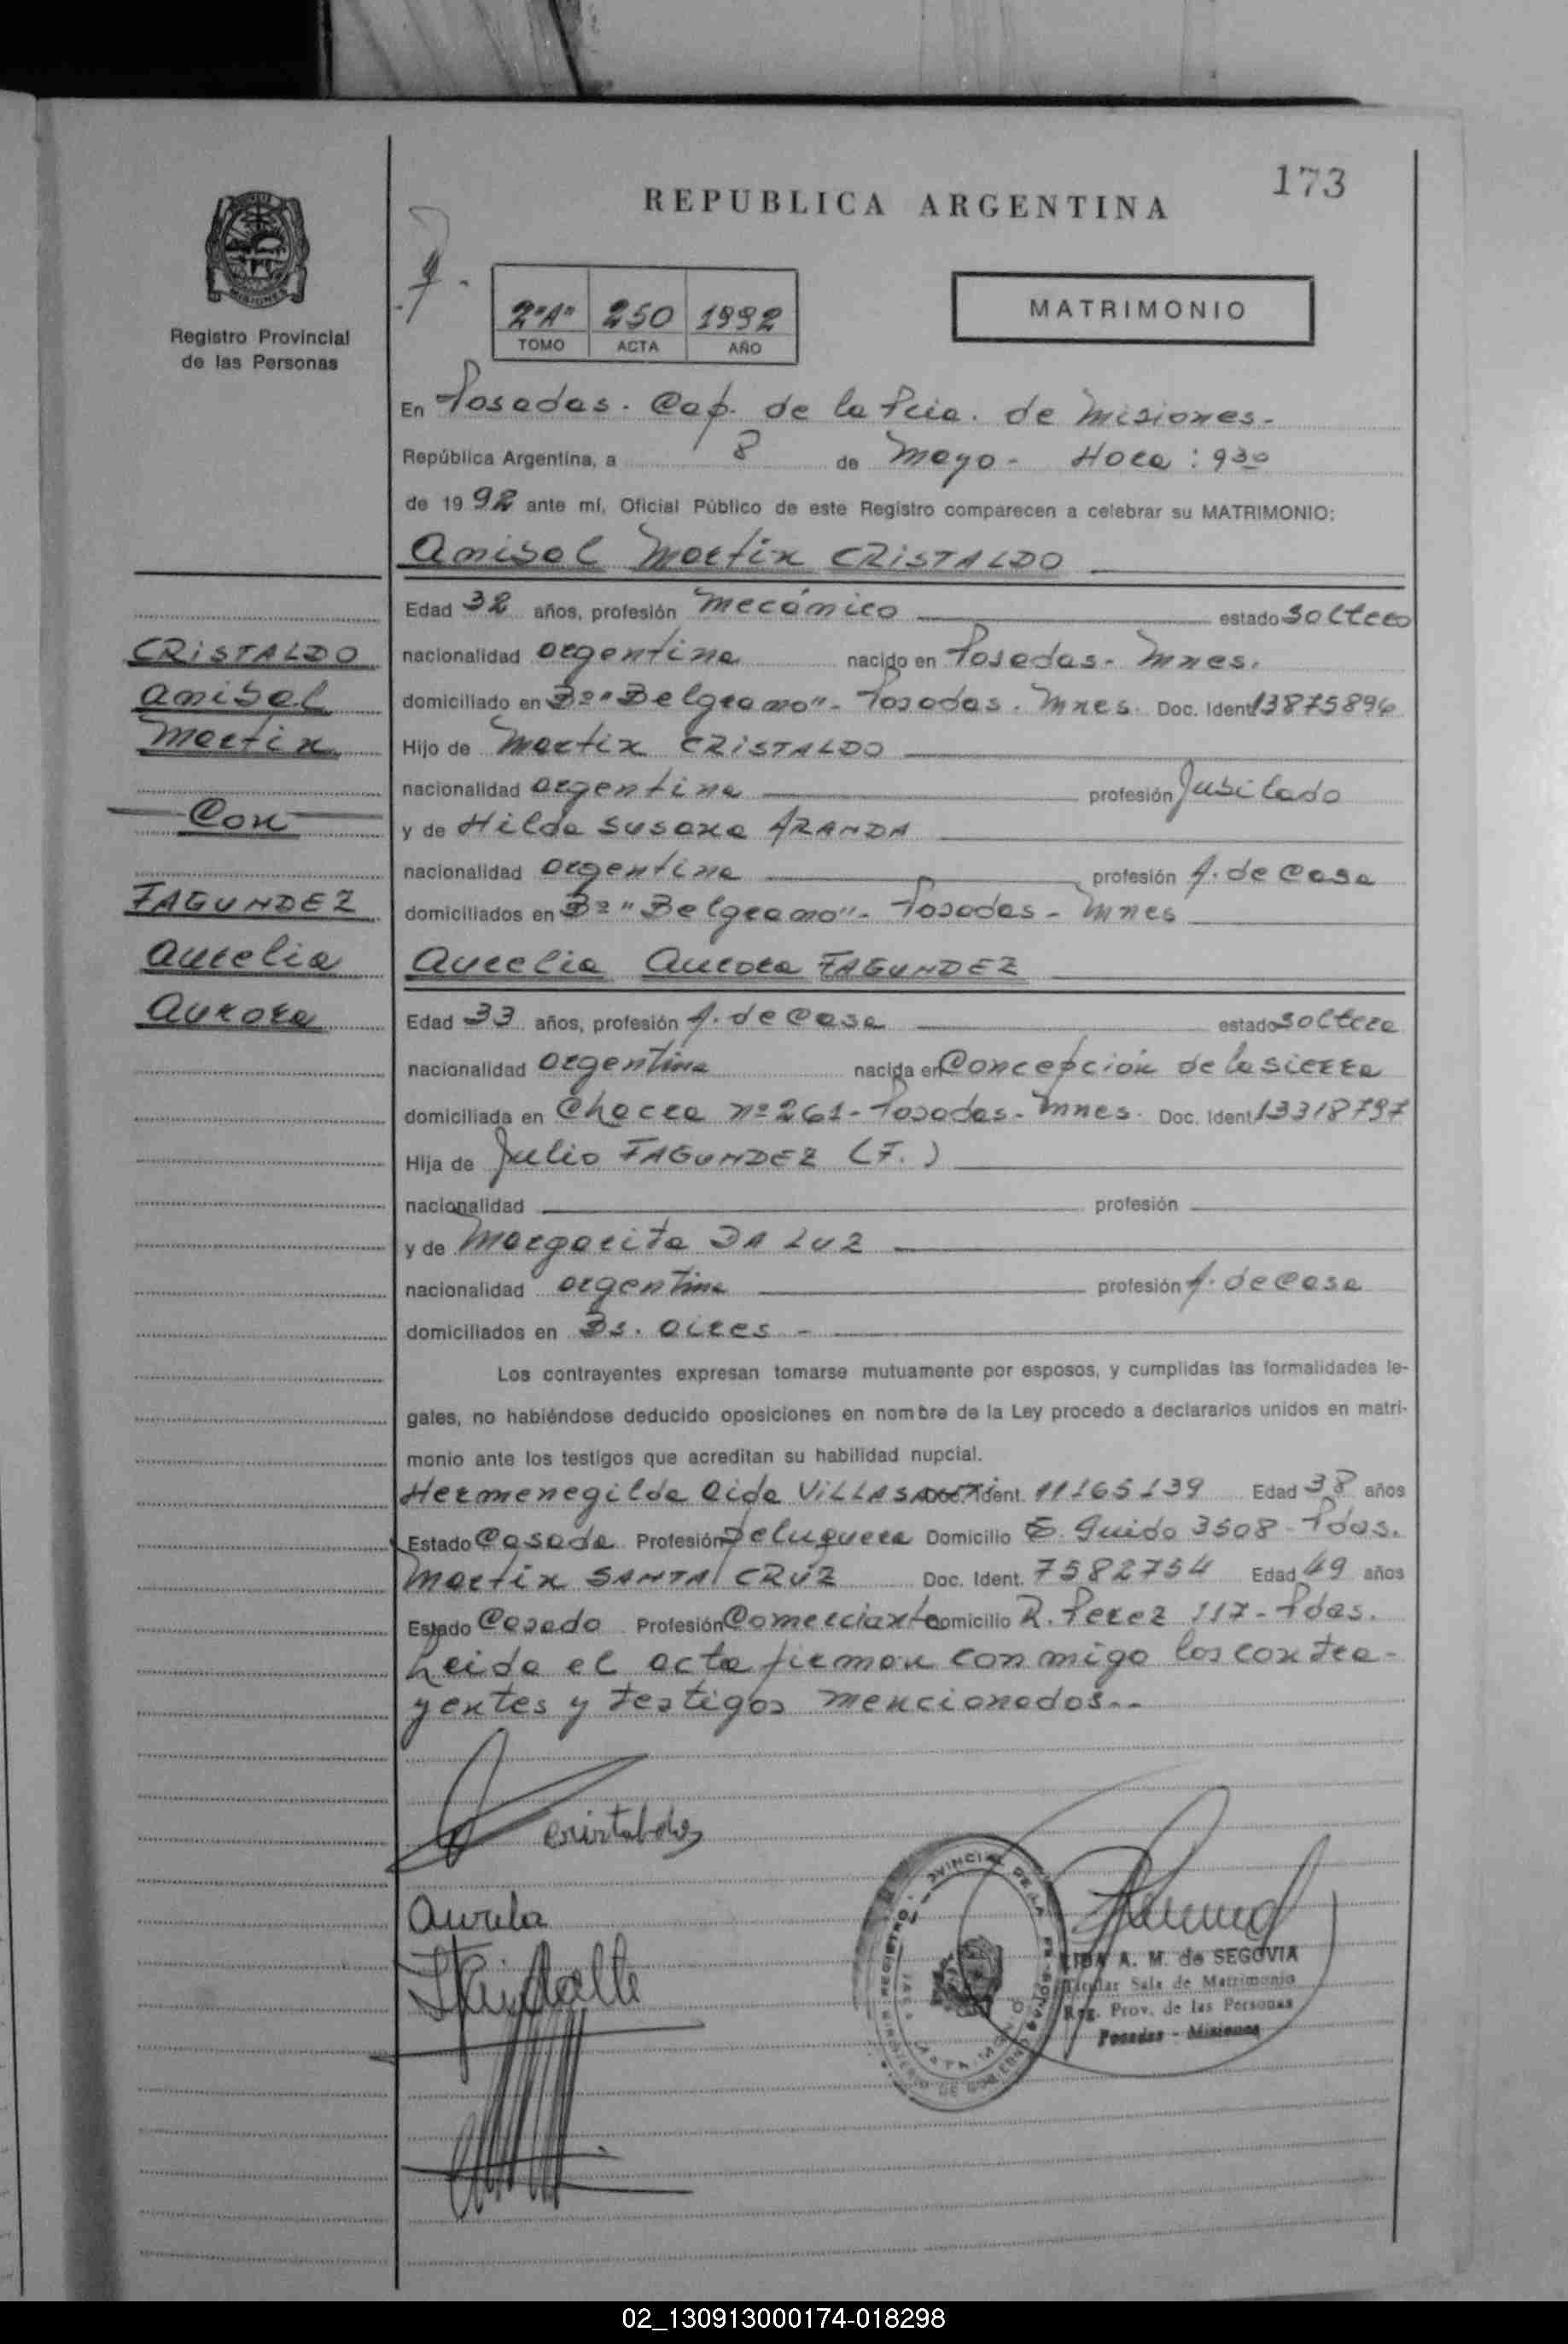 173
REPUBLICA ARGENTINA
MISIONES
Registro Provincial
de las Personas
2º"A" 250 1992
TOMO ACTA AÑO
MATRIMONIO
En Posadas. Cap. de la Pcia. de Misiones-
República Argentina, a 8 de Mayo - Hora: 9 30
de 1992 ante mí, Oficial Público de este Registro comparecen a celebrar su MATRIMONIO:
Anisal Martin CRISTALDO
Edad 32 años, profesión Mecánico estado soltero
nacionalidad argentina nacido en Posadas- Mnes.
domiciliado en Bº "Belgrano"- Posadas. Mnes. Doc. Ident. 13875896
Hijo de Martin CRISTALDO
nacionalidad argentina profesión Jubilado
y de Hilda Susana ARANDA
nacionalidad argentina profesión A. de Casa
domiciliados en Bº "Belgrano"- Posadas - Mnes
CRISTALDO
Anisal
Martin
Con
FAGUNDEZ
Aurelia
Aurora
Aurelia Aurora FAGUNDEZ
Edad 33 años, profesión A. de Casa estado soltera
nacionalidad argentina nacida en Concepción de la Sierra
domiciliada en Chacra nº 261- Posadas- Mnes. Doc. Ident. 13318797
Hija de Julio FAGUNDEZ (F.)
nacionalidad profesión
y de Margarita DA LUZ
nacionalidad argentina profesión A. de Casa
domiciliados en Bs. Aires -
Los contrayentes expresan tomarse mutuamente por esposos, y cumplidas las formalidades le-
gales, no habiéndose deducido oposiciones en nombre de la Ley procedo a declararlos unidos en matri-
monio ante los testigos que acreditan su habilidad nupcial.
Hermenegilda Aida VILLASANTI Doc. Ident. 11165139 Edad 38 años
Estado Casada Profesión Peluquera Domicilio E. Guido 3508 - Pdas.
Martin SANTA CRUZ Doc. Ident. 7582754 Edad 49 años
Estado Casado Profesión Comerciante Domicilio R. Perez 117- Pdas.
Leida el acta firman conmigo los contra-
yentes y testigos mencionados..
Cristaldo
Aurelia
A. M. de SEGOVIA
Titular Sala de Matrimonio
Reg. Prov. de las Personas
Posadas - Misiones
02_130913000174-018298